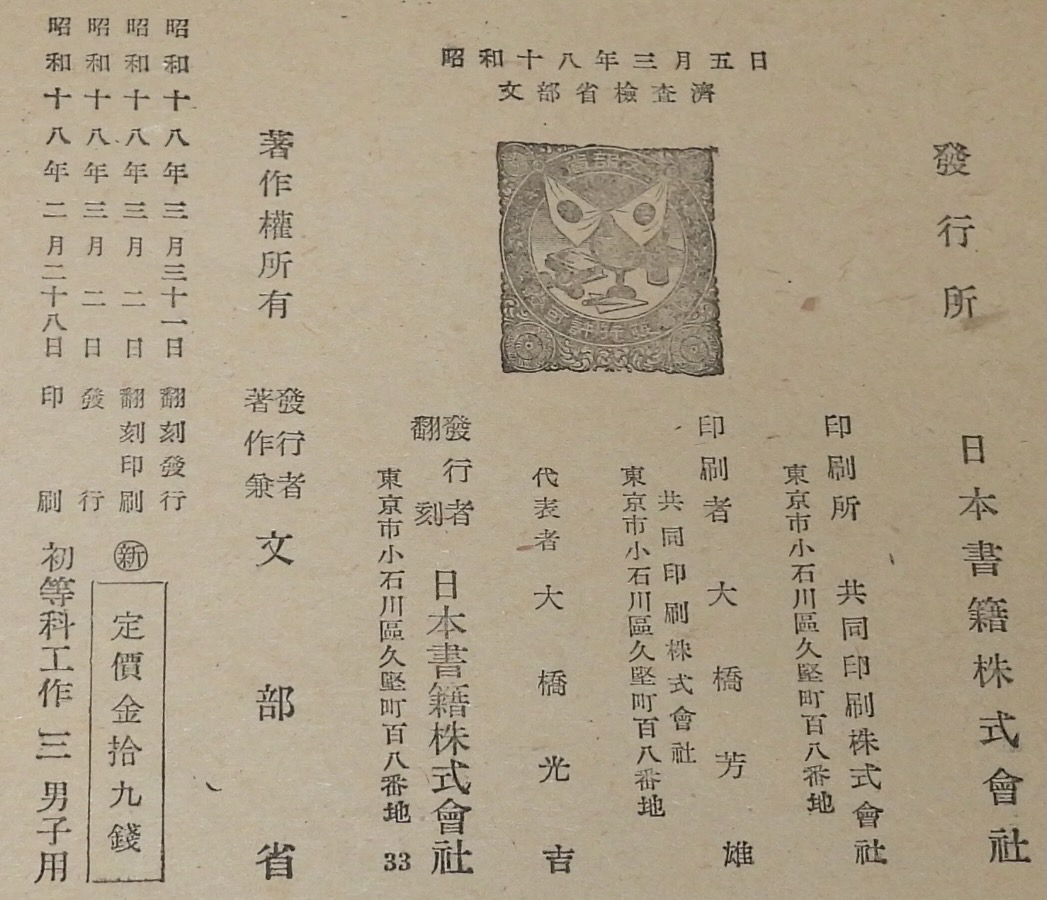 昭和十八年三月五日
文部省檢査濟
昭和十八年二月二十八日 印刷
昭和十八年三月二日 發行
昭和十八年三月二日 翻刻印刷
昭和十八年三月三十一日 翻刻發行
初等科工作 三 男子用
㊟新
定價金拾九錢
著作權所有
著作兼
發行者 文部省
東京市小石川區久堅町百八番地
33
翻刻
發行者 日本書籍株式會社
代表者 大橋光吉
東京市小石川區久堅町百八番地
共同印刷株式會社
印刷者 大橋芳雄
東京市小石川區久堅町百八番地
印刷所 共同印刷株式會社
發行所 日本書籍株式會社